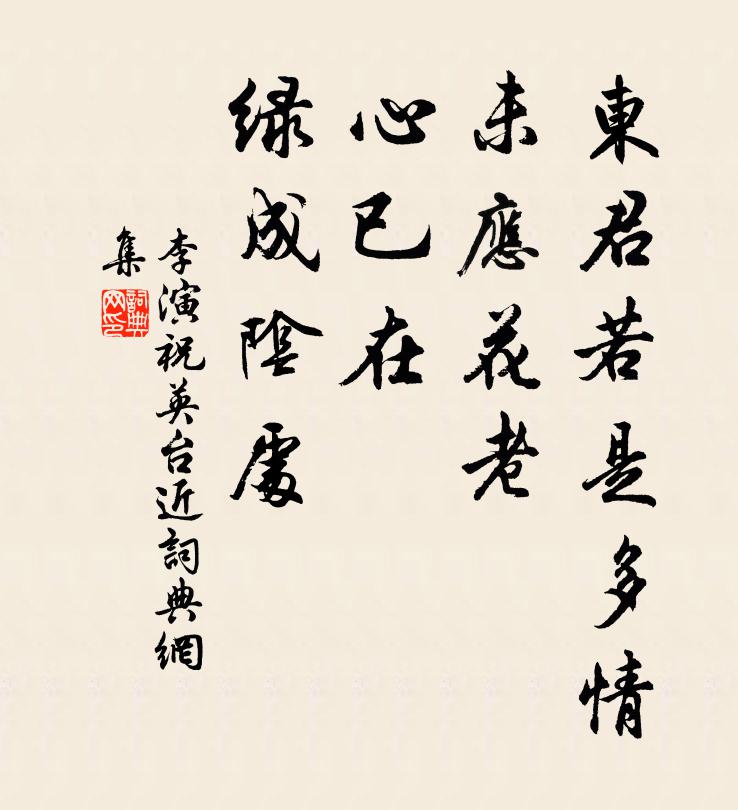 東君若是多情
未應花老
心已在
緑成陰處
李演祝英台近詞典網
集
詞典
网印